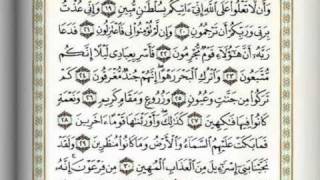 وَأَن لَّا تَعْلُوا۟ عَلَى ٱللَّهِ إِنِّىٓ ءَاتِيكُم بِسُلْطَٰنٍ مُّبِينٍ ١٩ وَإِنِّى عُذْتُ
بِرَبِّى وَرَبِّكُمْ أَن تَرْجُمُونِ ٢٠ وَإِن لَّمْ تُؤْمِنُوا۟ لِى فَٱعْتَزِلُونِ ٢١ فَدَعَا
رَبَّهُۥٓ أَنَّ هَٰٓؤُلَآءِ قَوْمٌ مُّجْرِمُونَ ٢٢ فَأَسْرِ بِعِبَادِى لَيْلًا إِنَّكُم
مُّتَّبَعُونَ ٢٣ وَٱتْرُكِ ٱلْبَحْرَ رَهْوًا إِنَّهُمْ جُندٌ مُّغْرَقُونَ ٢٤ كَمْ
تَرَكُوا۟ مِن جَنَّٰتٍ وَعُيُونٍ ٢٥ وَزُرُوعٍ وَمَقَامٍ كَرِيمٍ ٢٦ وَنَعْمَةٍ
كَانُوا۟ فِيهَا فَٰكِهِينَ ٢٧ كَذَٰلِكَ وَأَوْرَثْنَٰهَا قَوْمًا ءَاخَرِينَ ٢٨
فَمَا بَكَتْ عَلَيْهِمُ ٱلسَّمَآءُ وَٱلْأَرْضُ وَمَا كَانُوا۟ مُنظَرِينَ ٢٩ وَلَقَدْ
نَجَّيْنَا بَنِىٓ إِسْرَٰٓءِيلَ مِنَ ٱلْعَذَابِ ٱلْمُهِينِ ٣٠ مِن فِرْعَوْنَ إِنَّهُۥ